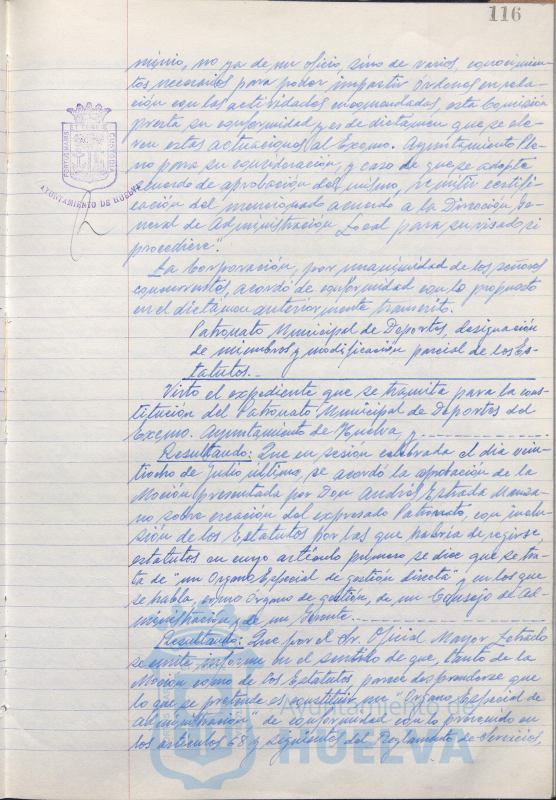 116
minio, no ya de un oficio, sino de varios, conocimien-
tos necesarios para poder impartir órdenes en rela-
ción con las actividades encomendadas, esta Comisión
presta su conformidad y es de dictamen que se ele-
ven estas actuaciones al Excmo. Ayuntamiento Ple-
no para su consideración y caso de que se adopte
acuerdo de aprobación del mismo, remitir certifi-
cación del mencionado acuerdo a la Dirección Ge-
neral de Administración Local para su visado si
procediere".
La Corporación, por unanimidad de los señores
concurrentes, acordó de conformidad con lo propuesto
en el dictamen anteriormente transcrito.
Patronato Municipal de Deportes, designación
de miembros y modificación parcial de los Es-
tatutos.-
Visto el expediente que se tramita para la cons-
titución del Patronato Municipal de Deportes del
Excmo. Ayuntamiento de Huelva, y
Resultando: Que en sesión celebrada el día vein-
tiocho de Julio último, se acordó la aprobación de la
Moción presentada por Don Andrés Estrada Manza-
no sobre creación del expresado Patronato, con inclu-
sión de los Estatutos por las que habría de regirse,
estatutos en cuyo artículo primero se dice que se tra-
ta de "un Organo Especial de gestión directa" y en los que
se habla, como Organo de gestión, de un Consejo de Ad-
ministración y de un Gerente.
Resultando: Que por el Sr. Oficial Mayor Letrado
se emite informe en el sentido de que, tanto de la
Moción como de los Estatutos, parece desprenderse que
lo que se pretende es constituir un "Organo Especial de
Administración" de conformidad con lo prevenido en
los artículos 68 y siguientes del Reglamento de Servicios,
PORTUS MARIS
CUSTODIA
AYUNTAMIENTO DE HUELVA
Ayuntamiento de
HUELVA